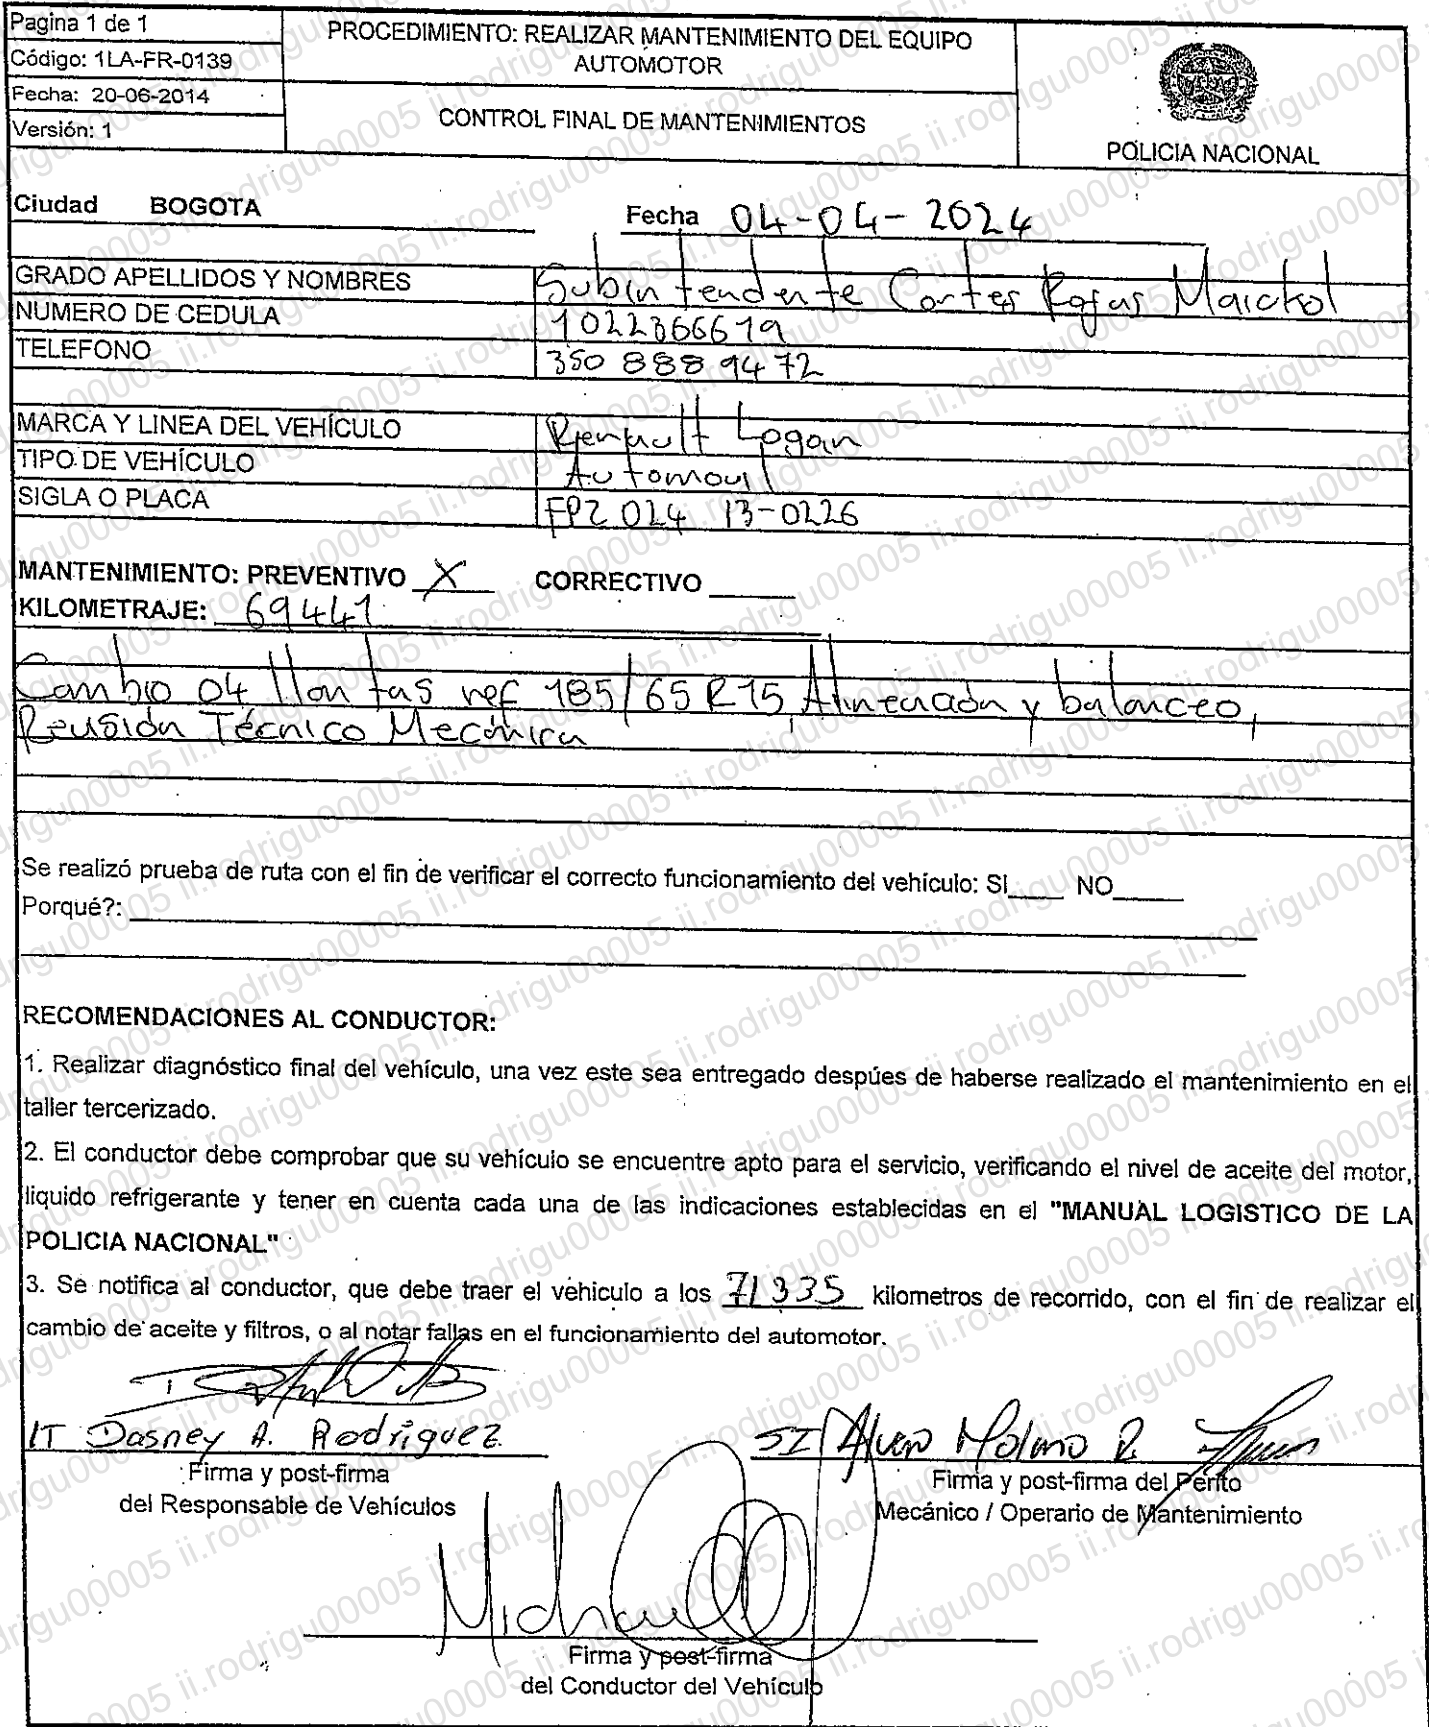 Pagina 1 de 1
Código: 1LA-FR-0139
Fecha: 20-06-2014
Versión: 1
PROCEDIMIENTO: REALIZAR MANTENIMIENTO DEL EQUIPO
AUTOMOTOR
CONTROL FINAL DE MANTENIMIENTOS
POLICIA NACIONAL
Ciudad BOGOTA Fecha 04-04-2024
GRADO APELLIDOS Y NOMBRES Subintendente Cortes Rojas Maickol
NUMERO DE CEDULA 1022366619
TELEFONO 350 888 9472
MARCA Y LINEA DEL VEHÍCULO Renault Logan
TIPO DE VEHÍCULO Automovil
SIGLA O PLACA FPZ 024 13-0226
MANTENIMIENTO: PREVENTIVO X CORRECTIVO
KILOMETRAJE: 69441
Cambio 04 llantas ref 185/65 R15, Alineación y balanceo,
Revisión Técnico Mecánica
Se realizó prueba de ruta con el fin de verificar el correcto funcionamiento del vehículo: SI____ NO____
Porqué?:
RECOMENDACIONES AL CONDUCTOR:
1. Realizar diagnóstico final del vehículo, una vez este sea entregado despúes de haberse realizado el mantenimiento en el
taller tercerizado.
2. El conductor debe comprobar que su vehículo se encuentre apto para el servicio, verificando el nivel de aceite del motor,
liquido refrigerante y tener en cuenta cada una de las indicaciones establecidas en el "MANUAL LOGISTICO DE LA
POLICIA NACIONAL"
3. Se notifica al conductor, que debe traer el vehiculo a los 71335 kilometros de recorrido, con el fin de realizar el
cambio de aceite y filtros, o al notar fallas en el funcionamiento del automotor.
IT Dasney A. Rodriguez
Firma y post-firma
del Responsable de Vehículos
SI Alvaro Molano R.
Firma y post-firma del Perito
Mecánico / Operario de Mantenimiento
Firma y post-firma
del Conductor del Vehículo
ii.rodrigu00005